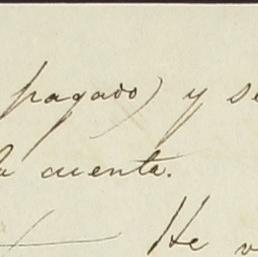 pagado) y se
la cuenta.
He v